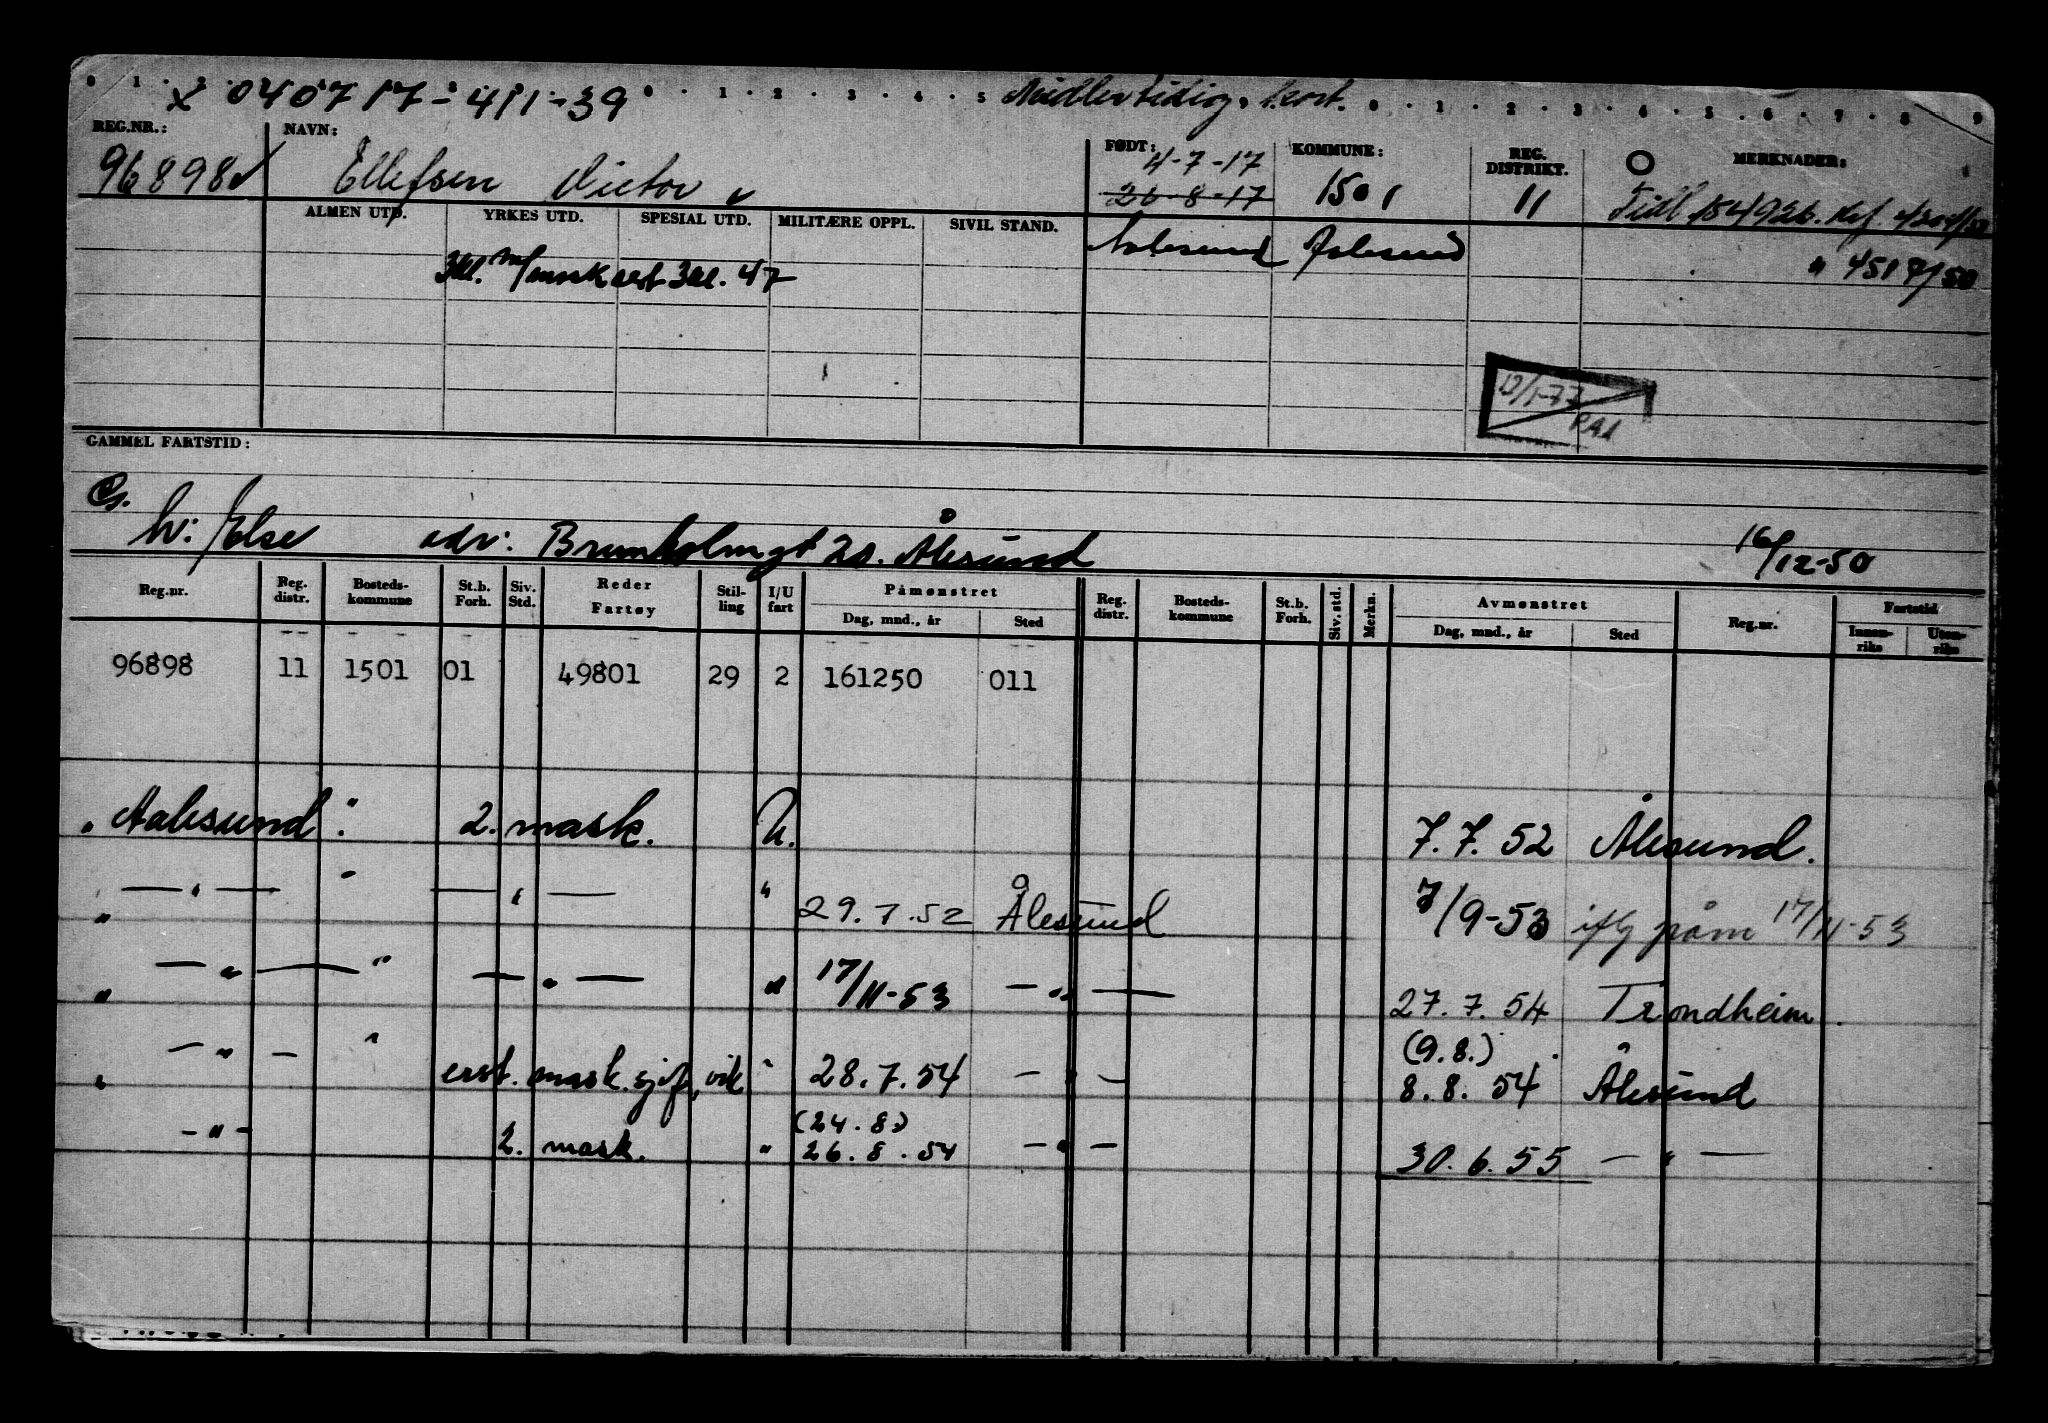 x 040717-411-39 Midlertidig kort.
REG.NR.: NAVN: FØDT: KOMMUNE: REG. DISTRIKT. MERKNADER:
96898 Ellefsen Victor 4-7-17 1501 11
26-8-17
ALMEN UTD. YRKES UTD. SPESIAL UTD. MILITÆRE OPPL. SIVIL STAND. Aalesund Aalesund
3kl. 3kl. 47 " 4517/50
12/1-77
GAMMEL FARTSTID:
h: Else adr: Brunholmgt 20. Ålesund 16/12-50
Reg.nr. Reg. distr. Bosteds-kommune St.b. Forh. Siv. Std. Reder Fartøy Stil-ling I/U fart Påmønstret Reg. distr. Bosteds-kommune St.b. Forh. Siv. std. Merkn. Avmønstret Reg.nr. Fartstid
Dag, mnd., år Sted Dag, mnd., år Sted Innen-riks Uten-riks
96898 11 1501 01 49801 29 2 161250 011
" Aalesund " 2. mask. U. 7.7.52 Ålesund.
" — " — " — " — " 29.7.52 Ålesund 7/9-53 iflg påm 17/11-53
" — " — " — " — " 17/11-53 — " — 27.7.54 Trondheim.
(9.8.)
" — " — " erst. mask. sjef, vik " 28.7.54 — " — 8.8.54 Ålesund
(24.8)
— " — 2. mask. " 26.8.54 — " — 30.6.55 — " —